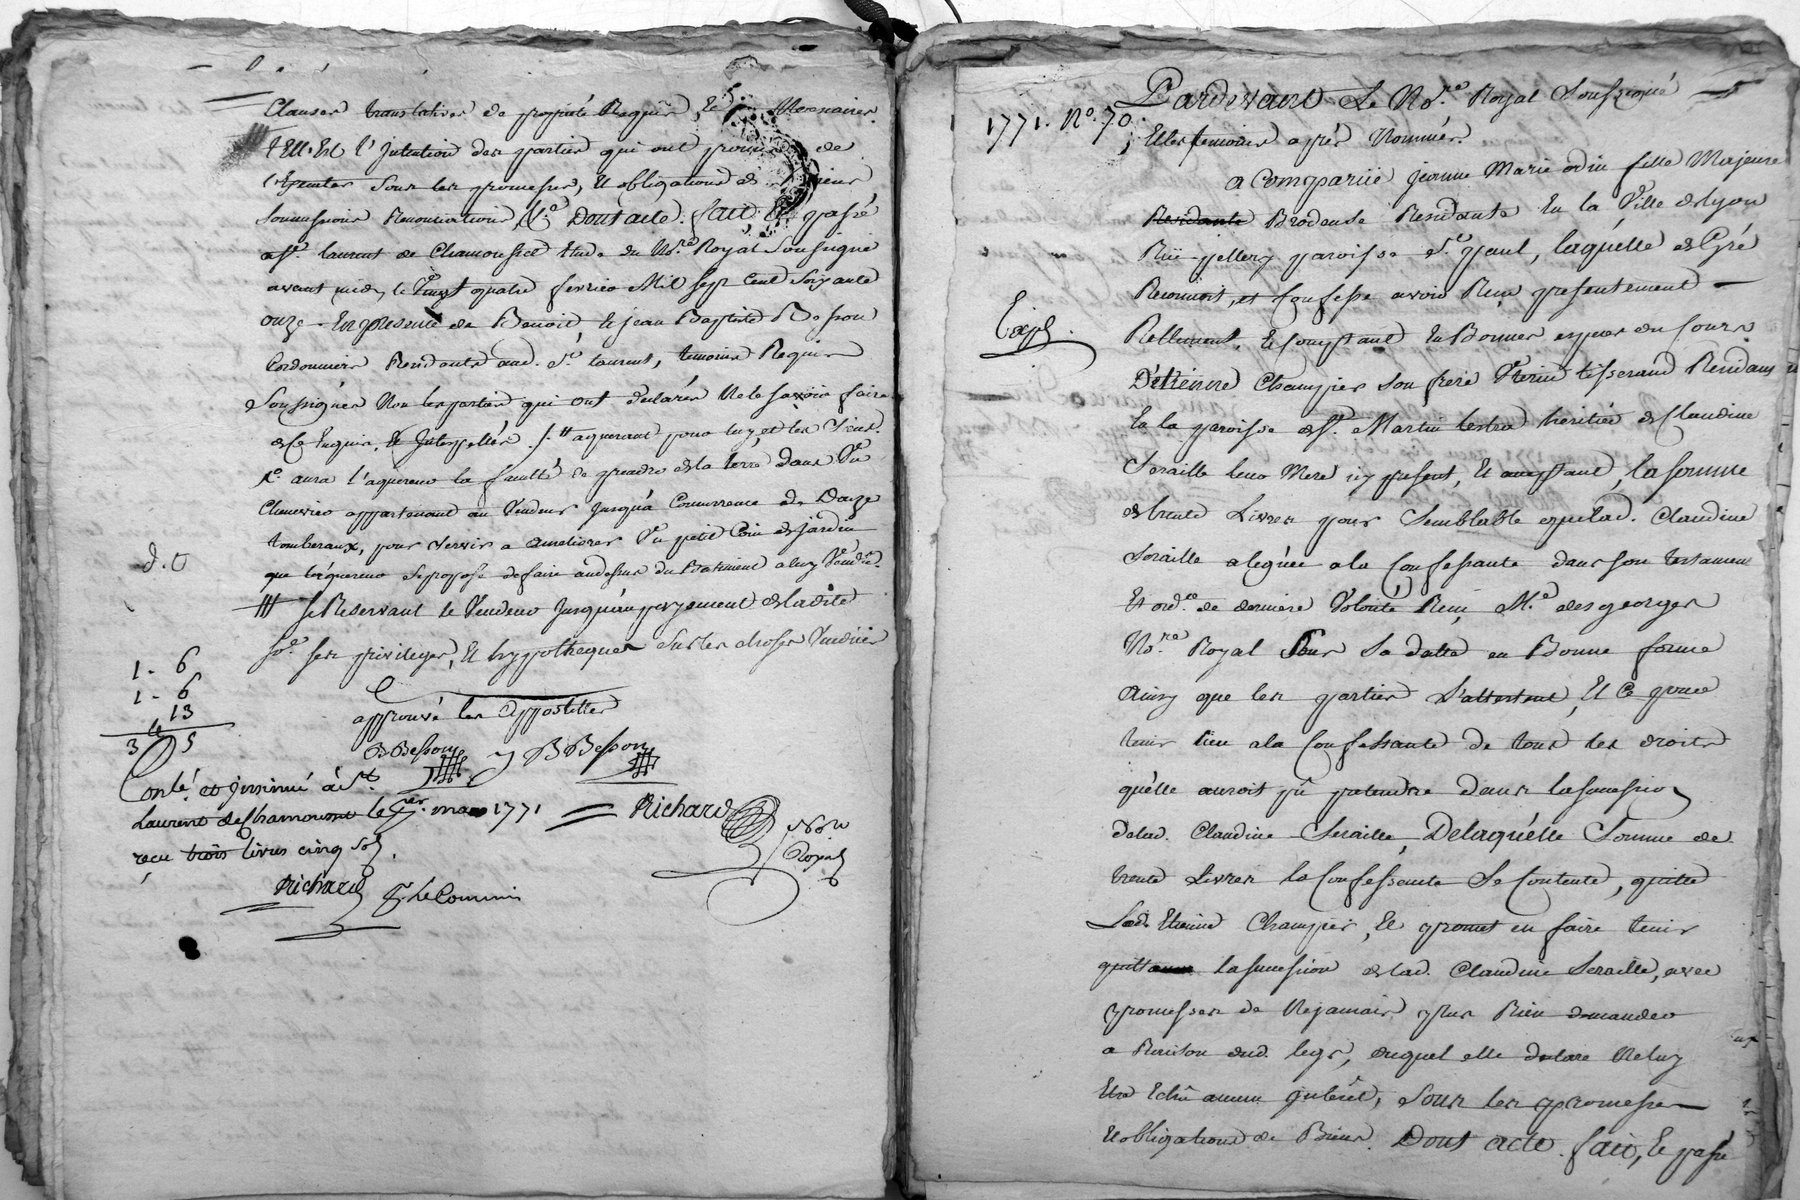 Clauses translatives de propriété Requise, Et Necessaires
tElle Est l'Intention des parties qui ont promis de
Sous les promesses, Et obligations de Biens
Soumissions Renonciations, &c. Dont acte. fait, Et passé
a St. laurent de Chamousset Etude du No.re Royal Soussigné
avant midy, le Vingt quatre fevrier Mil Sept Cent Soixante
onze. En presence de Benoit, Et jean Baptiste Besson
Cordonniers Residants aud. St. laurent, temoins Requis
Soussignés Non les parties qui ont declarés Ne le Savoir faire
de Ce Enquis, Et Interpellés. /. aquereur pour luy, et les Siens.
aura l'aquereur la faculté de prendre de la terre dans Un
Chenevier appartenant au Vendeur Jusqu'a Concurrence de Douze
tombereaux, pour servir a ameliorer Un petit Coin de jardin
que l'aquereur Se propose de faire audessus du Batiment a luy Vendu.
Se Reservant le Vendeur Jusqu'au payement de ladite
So.e ses privileges, Et hypotheques Sur les choses Vendües
d. o
1 - 6
1 - 6
13
3 5
approuvé les Appostilles
B Besson J B Besson
Conlé. et insinué à St.
Laurent de Chamousset le 1er. mars 1771
reçu trois livres cinq sols.
Richard
Richard No.re
Royal
Richard p. le Commis
1771. No. 70.
Pardevant Le No.re Royal Soussigné
Et les temoins après Nommés.
a Comparüe jeanne Marie odin fille Majeure
Residante Brodeuse Residante En la Ville de lyon
Rüe pellery paroisse St. paul, laquelle de Gré
Reconnoit, et Confesse avoir Reçu presentement
Expe.
Rellement, Et Comptant En Bonnes especes du Cours
D'Etienne Champier Son frere Uterin tisserand Residant
En la paroisse de St. Martin lestra heritier de Claudine
Seraille leur Mere icy present, Et acceptant, la Somme
de trente Livres pour Semblable que lad. Claudine
Seraille a leguée a la Confessante dans son testament
Et ord.ce de derniere Volonté Reçu, M.e desgeorges
No.re Royal Sous Sa datte en Bonne forme
Ainsy que les parties L'attestent, Et Ce pour
tenir lieu a la Confessante de tous les droits
qu'elle auroit pû pretendre dans la Succession
de lad. Claudine Seraille, De laquelle Somme de
trente Livres la Confessante Se Contente, quitte
Led. Etienne Champier, Et promet en faire tenir
quitte la Succession de lad. Claudine Seraille, avec
promesses de Ne jamais plus Rien demander
a Raison dud. legs, duquel elle declare Ne luy
Etre Echû aucun interêt, Sous les promesses
Et obligations de Biens. Dont acte. fait, Et passé